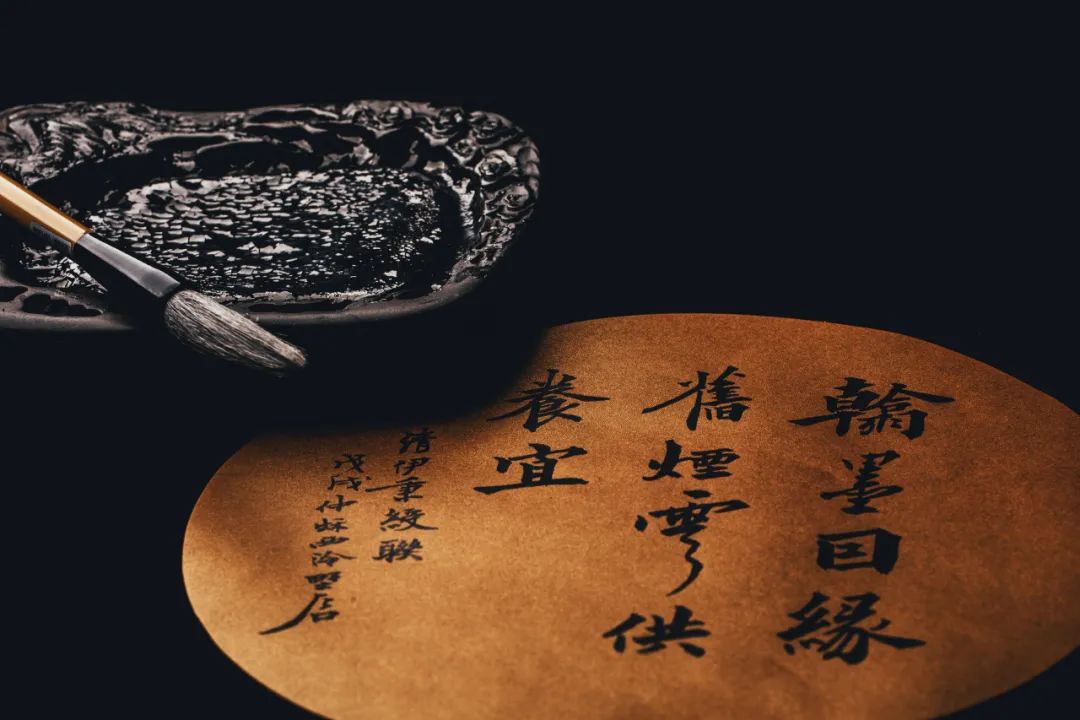 翰墨囙緣
舊煙雲供
養宜
清伊秉綬聯
戊戌仲秋西泠店